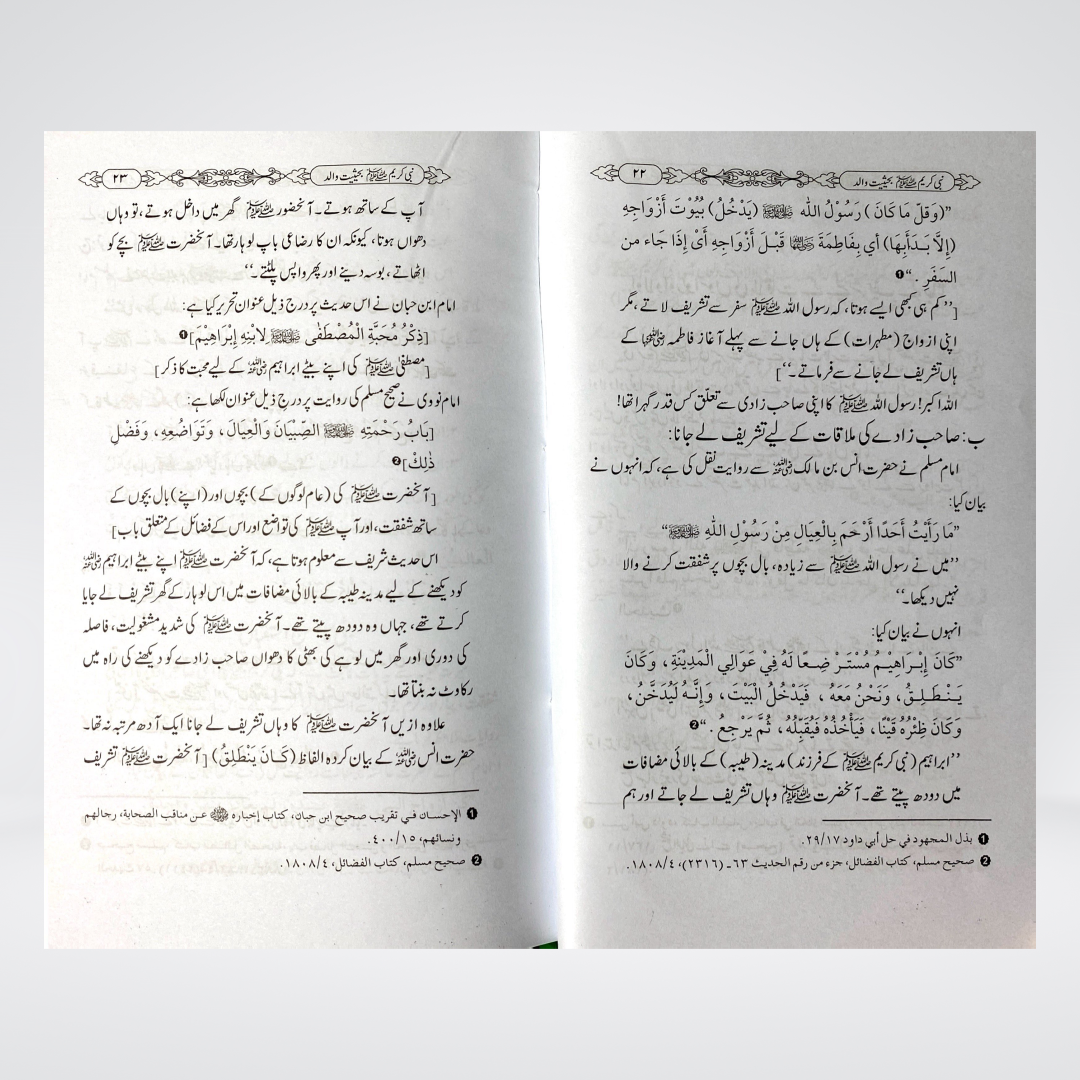 نبی کریم ﷺ بحیثیت والد
۲۲
”(وَقَلّ مَا كَانَ) رَسُوْلُ اللّٰه ﷺ (يَدْخُلُ) بُيُوْتَ أَزْوَاجِهِ
(إِلَّا بَـدَأَبِهَا) أي بِفَاطِمَةَ رضی اللہ عنہا قَبْـلَ أَزْوَاجِهِ أَىْ إِذَا جَاء من
السَفَرِ .“❶
[’’کم ہی کبھی ایسے ہوتا، کہ رسول اللہ ﷺ سفر سے تشریف لاتے، مگر
اپنی ازواج (مطہرات) کے ہاں جانے سے پہلے آغاز فاطمہ رضی اللہ عنہا کے
ہاں تشریف لے جانے سے فرماتے۔‘‘]
اللہ اکبر! رسول اللہ ﷺ کا اپنی صاحب زادی سے تعلّق کس قدر گہرا تھا!
ب: صاحب زادے کی ملاقات کے لیے تشریف لے جانا:
امام مسلم نے حضرت انس بن مالک رضی اللہ عنہ سے روایت نقل کی ہے، کہ انہوں نے
بیان کیا:
”مَا رَأَيْتُ أَحَدًا أَرْحَمَ بِالْعِيَالِ مِنْ رَسُوْلِ اللّٰهِ ﷺ“
’’میں نے رسول اللہ ﷺ سے زیادہ، بال بچوں پر شفقت کرنے والا
نہیں دیکھا۔‘‘
انہوں نے بیان کیا:
”كَانَ إِبْرَاهِيْـمُ مُسْتَـرْ ضِـعًا لَهُ فِيْ عَوَالِي الْمَدِيْنَةِ، وَكَانَ
يَـنْـطَلِـقُ، وَنَحْنُ مَعَهُ ، فَيَدْخُلُ الْبَيْتَ، وَإِنَّـهُ لَيُدَخَّنُ،
وَكَانَ ظِئْرُهُ قَيْنًا، فَيَأْخُذُهُ فَيُقَبِّلُهُ، ثُمَّ يَرْجِعُ .“❷
’’ابراہیم (نبی کریم ﷺ کے فرزند) مدینہ (طیبہ) کے بالائی مضافات
میں دودھ پیتے تھے۔ آنحضرت ﷺ وہاں تشریف لے جاتے اور ہم
❶ بذل المجهود في حل أبي داود ٢٩/١٧.
❷ صحيح مسلم، كتاب الفضائل، جزء من رقم الحديث ٦٣ـ (٢٣١٦)، ١٨٠٨/٤.
نبی کریم ﷺ بحیثیت والد
۲۳
آپ کے ساتھ ہوتے۔ آنحضور ﷺ گھر میں داخل ہوتے، تو وہاں
دھواں ہوتا، کیونکہ ان کا رضاعی باپ لوہار تھا۔ آنحضرت ﷺ بچے کو
اٹھاتے، بوسہ دیتے اور پھر واپس پلٹتے۔‘‘
امام ابن حبان نے اس حدیث پر درج ذیل عنوان تحریر کیا ہے:
[ذِكْرُ مُحَبَّةِ الْمُصْطَفٰى ﷺ لِابْنِهِ إِبْرَاهِيْمَ]❶
[مصطفیٰ ﷺ کی اپنے بیٹے ابراہیم رضی اللہ عنہ کے لیے محبت کا ذکر]
امام نووی نے صحیح مسلم کی روایت پر درج ذیل عنوان لکھا ہے:
[بَابُ رَحْمَتِهِ ﷺ الصِّبْيَانَ وَالْعِيَالَ، وَتَوَاضُعِهِ، وَفَضْلِ
ذٰلِكَ]❷
[آنحضرت ﷺ کی (عام لوگوں کے) بچوں اور (اپنے) بال بچوں کے
ساتھ شفقت، اور آپ ﷺ کی تواضع اور اس کے فضائل کے متعلق باب]
اس حدیث شریف سے معلوم ہوتا ہے، کہ آنحضرت ﷺ اپنے بیٹے ابراہیم رضی اللہ عنہ
کو دیکھنے کے لیے مدینہ طیبہ کے بالائی مضافات میں اس لوہار کے گھر تشریف لے جایا
کرتے تھے، جہاں وہ دودھ پیتے تھے۔ آنحضرت ﷺ کی شدید مشغولیت، فاصلہ
کی دوری اور گھر میں لوہے کی بھٹی کا دھواں صاحب زادے کو دیکھنے کی راہ میں
رکاوٹ نہ بنتا تھا۔
علاوہ ازیں آنحضرت ﷺ کا وہاں تشریف لے جانا ایک آدھ مرتبہ نہ تھا۔
حضرت انس رضی اللہ عنہ کے بیان کردہ الفاظ (كَـانَ يَنْطَلِقُ) [آنحضرت ﷺ تشریف
❶ الإحسان فـي تقريب صحيح ابن حبان، كتاب إخباره ﷺ عـن مناقب الصحابة، رجالهم
ونسائهم، ٤٠٠/١٥.
❷ صحيح مسلم، كتاب الفضائل، ١٨٠٨/٤.